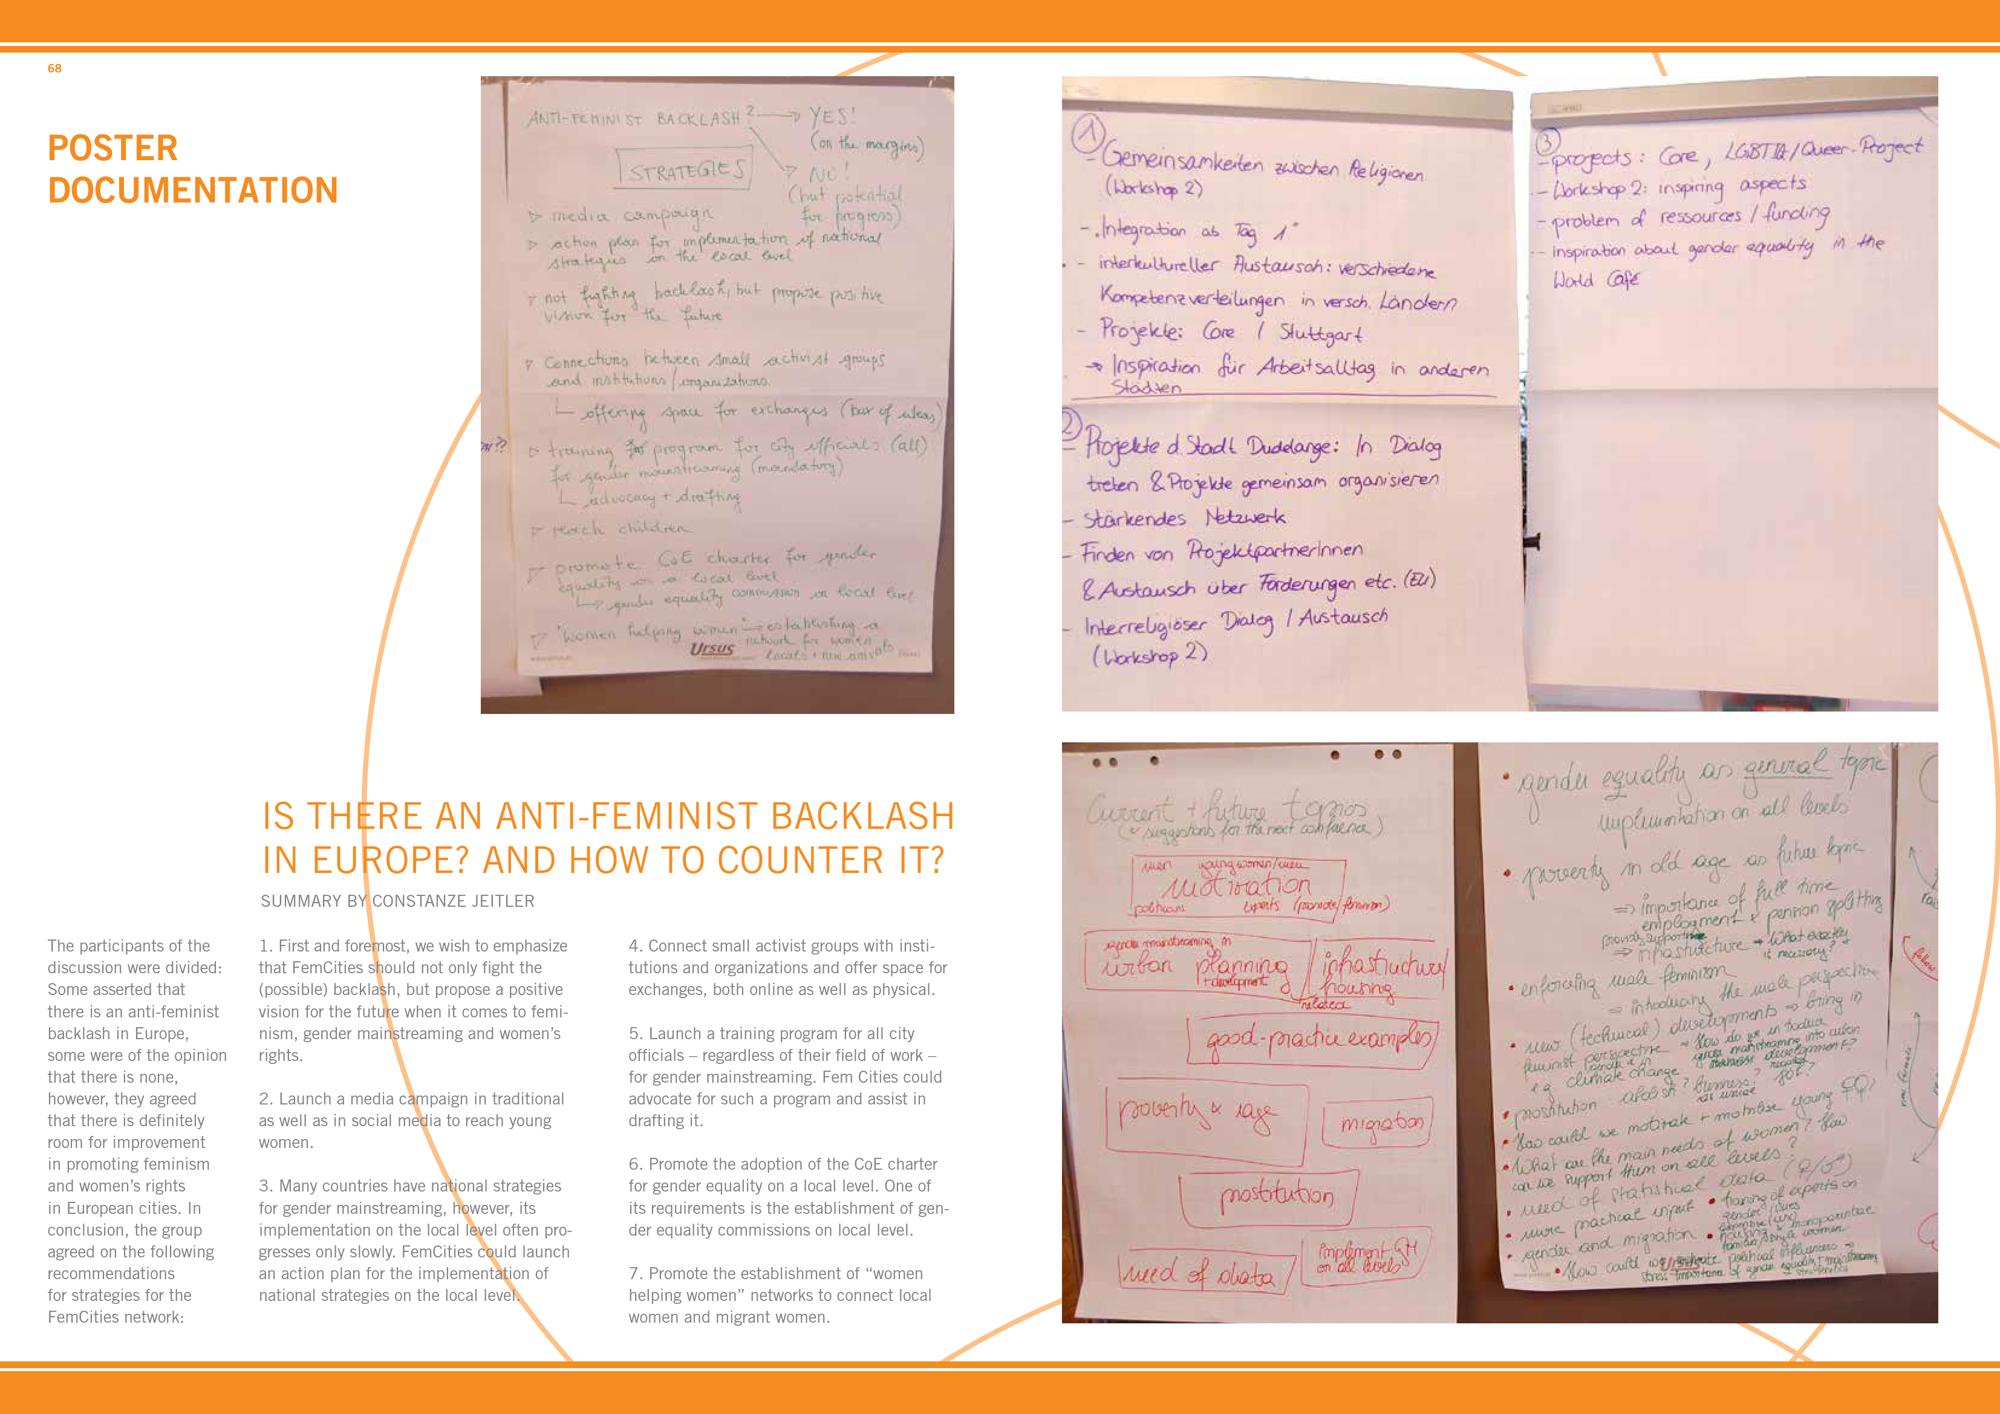 68
POSTER
DOCUMENTATION
ANTI-FEMINIST BACKLASH? → YES!
(on the margins)
STRATEGIES
NO!
(but potential
for progress)
▷ media campaign
▷ action plan for implementation of national
strategies on the local level
▷ not fighting backlash, but propose positive
vision for the future
▷ Connections between small activist groups
and institutions/organizations.
offering space for exchanges (box of ideas)
▷ training program for city officials (all)
for gender mainstreaming (mandatory)
advocacy + drafting
▷ reach children
▷ promote CoE charter for gender
equality on a local level
gender equality commission on local level
▷ "Women helping women" → establishing a
network for women
locals + new arrivals
Ursus
IS THERE AN ANTI-FEMINIST BACKLASH
IN EUROPE? AND HOW TO COUNTER IT?
SUMMARY BY CONSTANZE JEITLER
The participants of the
discussion were divided:
Some asserted that
there is an anti-feminist
backlash in Europe,
some were of the opinion
that there is none,
however, they agreed
that there is definitely
room for improvement
in promoting feminism
and women's rights
in European cities. In
conclusion, the group
agreed on the following
recommendations
for strategies for the
FemCities network:
1. First and foremost, we wish to emphasize
that FemCities should not only fight the
(possible) backlash, but propose a positive
vision for the future when it comes to femi-
nism, gender mainstreaming and women's
rights.
2. Launch a media campaign in traditional
as well as in social media to reach young
women.
3. Many countries have national strategies
for gender mainstreaming, however, its
implementation on the local level often pro-
gresses only slowly. FemCities could launch
an action plan for the implementation of
national strategies on the local level.
4. Connect small activist groups with insti-
tutions and organizations and offer space for
exchanges, both online as well as physical.
5. Launch a training program for all city
officials – regardless of their field of work –
for gender mainstreaming. Fem Cities could
advocate for such a program and assist in
drafting it.
6. Promote the adoption of the CoE charter
for gender equality on a local level. One of
its requirements is the establishment of gen-
der equality commissions on local level.
7. Promote the establishment of “women
helping women” networks to connect local
women and migrant women.
1
- Gemeinsamkeiten zwischen Religionen
(Workshop 2)
- "Integration ab Tag 1"
- interkultureller Austausch: verschiedene
Kompetenzverteilungen in versch. Ländern
- Projekte: Core / Stuttgart
→ Inspiration für Arbeitsalltag in anderen
Städten
2
- Projekte d. Stadt Duddelange: In Dialog
treten & Projekte gemeinsam organisieren
- Stärkendes Netzwerk
- Finden von ProjektpartnerInnen
& Austausch über Förderungen etc. (EU)
- Interreligiöser Dialog / Austausch
(Workshop 2)
3
- projects: Core, LGBTIA/Queer-Project
- Workshop 2: inspiring aspects
- problem of ressources / funding
- inspiration about gender equality in the
World Café
Current + future topics
(suggestions for the next conference)
men young women/men
motivation
politicians experts (promote feminism)
gender mainstreaming in
urban planning
+ development
infrastructure/
housing
related
good-practice examples
poverty & age
migration
prostitution
need of data
implement GM
on all levels
• gender equality as general topic
implementation on all levels
• poverty in old age as future topic
⇒ importance of full time
employment & pension splitting
⇒ infrastructure → What exactly
is necessary?
• enforcing male feminism
⇒ introducing the male perspective
• new (technical) developments ⇒ bring in
feminist perspective → How do we introduce
gender mainstreaming into urban
development?
e.g. climate change
• prostitution: abolish? business? job?
• How could we motivate + mobilise young ♀♀?
• What are the main needs of women? How
can we support them on all levels?
• need of statistical data (♀/♂)
• more practical input
• training of experts on
gender issues
• gender and migration
• How could we
political influencers